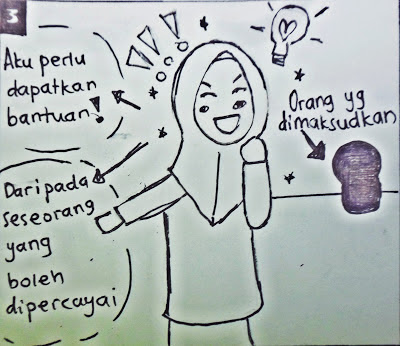 3
Aku perlu
dapatkan
bantuan!
Daripada
seseorang
yang
boleh
dipercayai
Orang yg
dimaksudkan